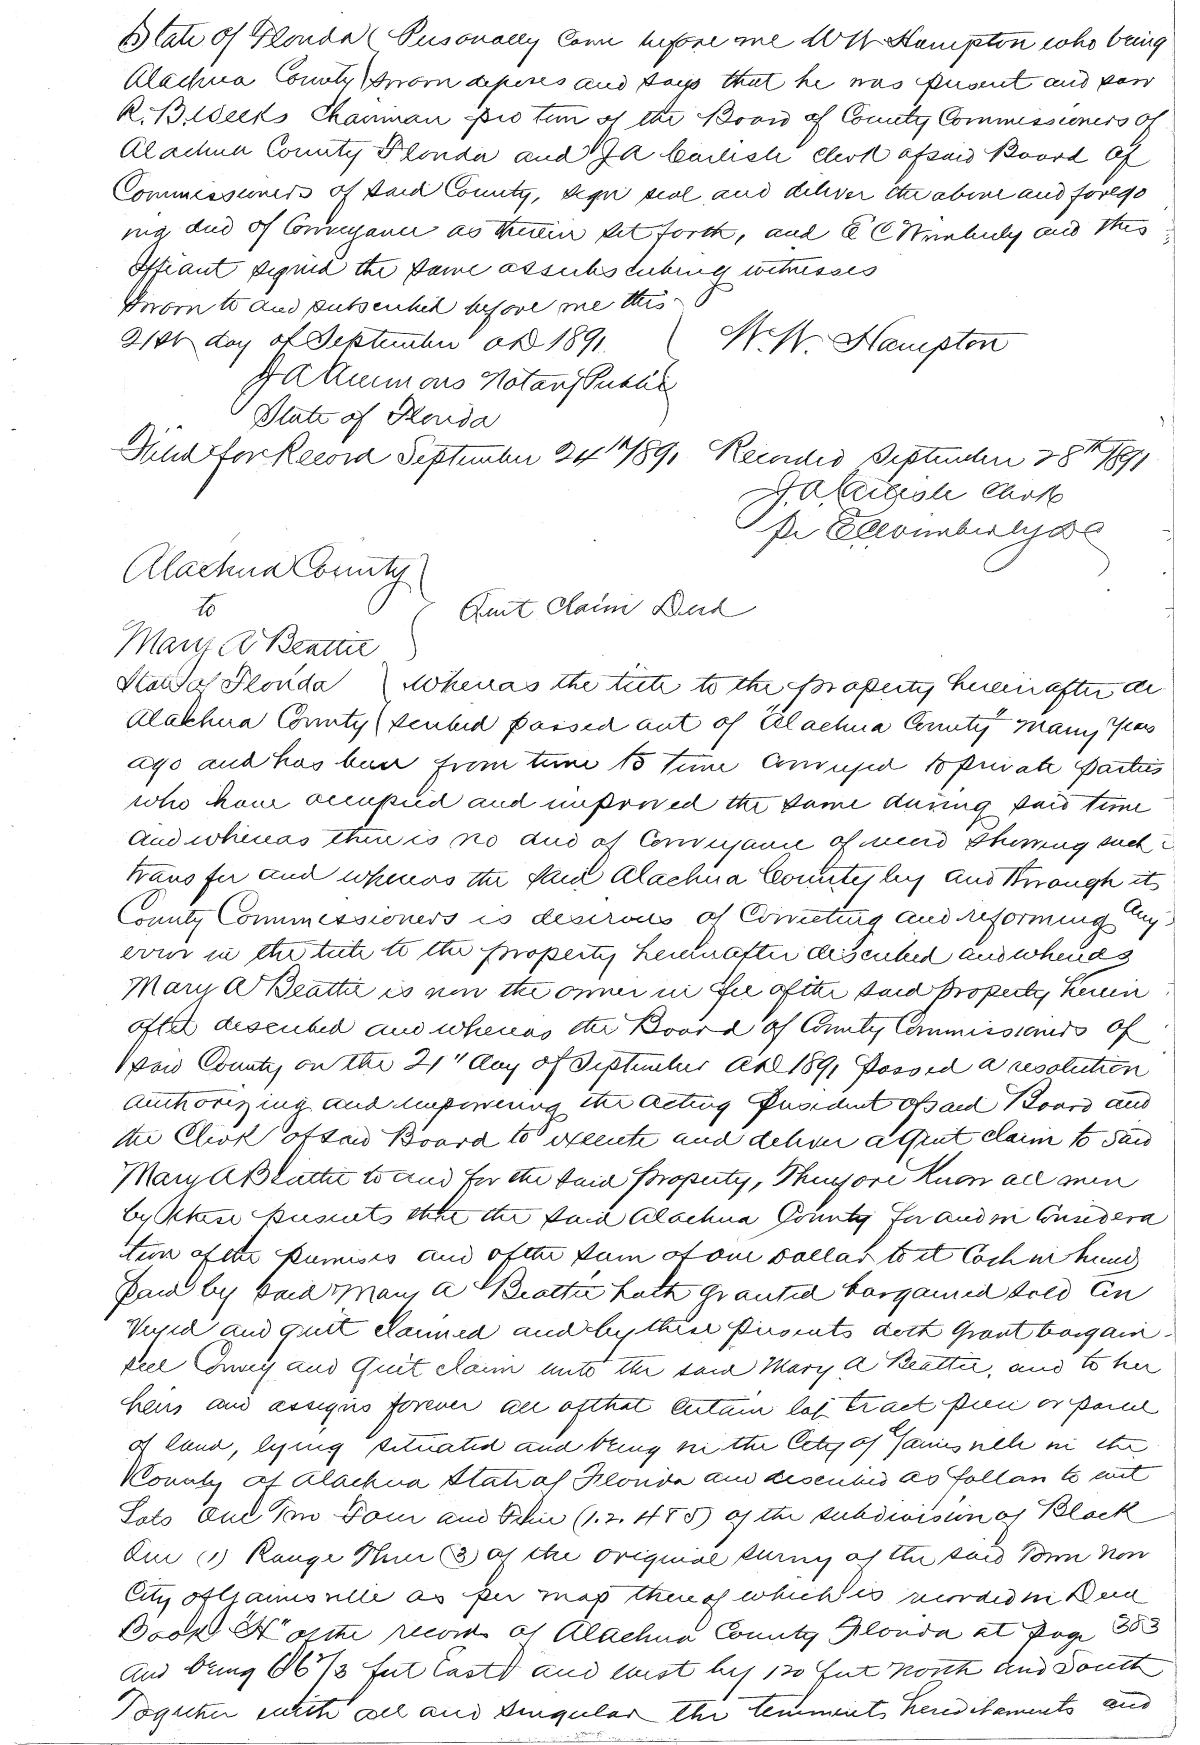 State of Florida ( Personally Came before me W W Hampton who being
Alachua County ) sworn deposes and says that he was present and saw
R. B. Weeks Chairman pro tem of the Board of County Commissioners of
Alachua County Florida and J A Carlisle Clerk of said Board of
Commissioners of said County, sign seal and deliver the above and forego
ing deed of Conveyance as therein set forth, and E C Wimberly and this
affiant signed the same as subscribing witnesses
Sworn to and subscribed before me this
21st day of September AD 1891 ( W. W. Hampton
J A Ammons Notary Public
State of Florida
Filed for Record September 24th/891 Recorded September 28th/891
J. A. Carlisle Clerk
Pr E C Wimberly DC
Alachua County )
to ( Quit Claim Deed
Mary A Beattie )
State of Florida ) Whereas the title to the property herein after de
Alachua County ( scribed passed out of "Alachua County" many years
ago and has been from time to time conveyed to private parties
who have occupied and improved the same during said time
and whereas there is no deed of Conveyance of record showing such
transfer and whereas the said Alachua County by and through its
County Commissioners is desirous of Correcting and reforming any
error in the title to the property hereinafter described and whereas
Mary A Beattie is now the owner in fee of the said property herein
after described and whereas the Board of County Commissioners of
said County on the 21" day of September AD 1891 passed a resolution
authorizing and empowering the acting President of said Board and
the Clerk of said Board to execute and deliver a Quit claim to said
Mary A Beattie to and for the said property, Therefore Know all men
by these presents that the said Alachua County for and in Considera
tion of the premises and of the sum of one Dollar to it Cash in hand
paid by said Mary A Beattie hath granted bargained sold Con
veyed and quit claimed and by these presents doth grant bargain
sell Convey and Quit claim unto the said Mary A Beattie, and to her
heirs and assigns forever all of that certain lot tract piece or parcel
of land, lying situated and being in the City of Gainesville in the
County of Alachua State of Florida and described as follow to wit
Lots One Two Four and Five (1. 2. 4 & 5) of the subdivision of Block
One (1) Range Three (3) of the original survey of the said Town now
City of Gainesville as per map thereof which is recorded in Deed
Book "H" of the records of Alachua County Florida at page 383
and being 66 2/3 feet East and west by 120 feet North and South
Together with all and singular the tenements hereditaments and